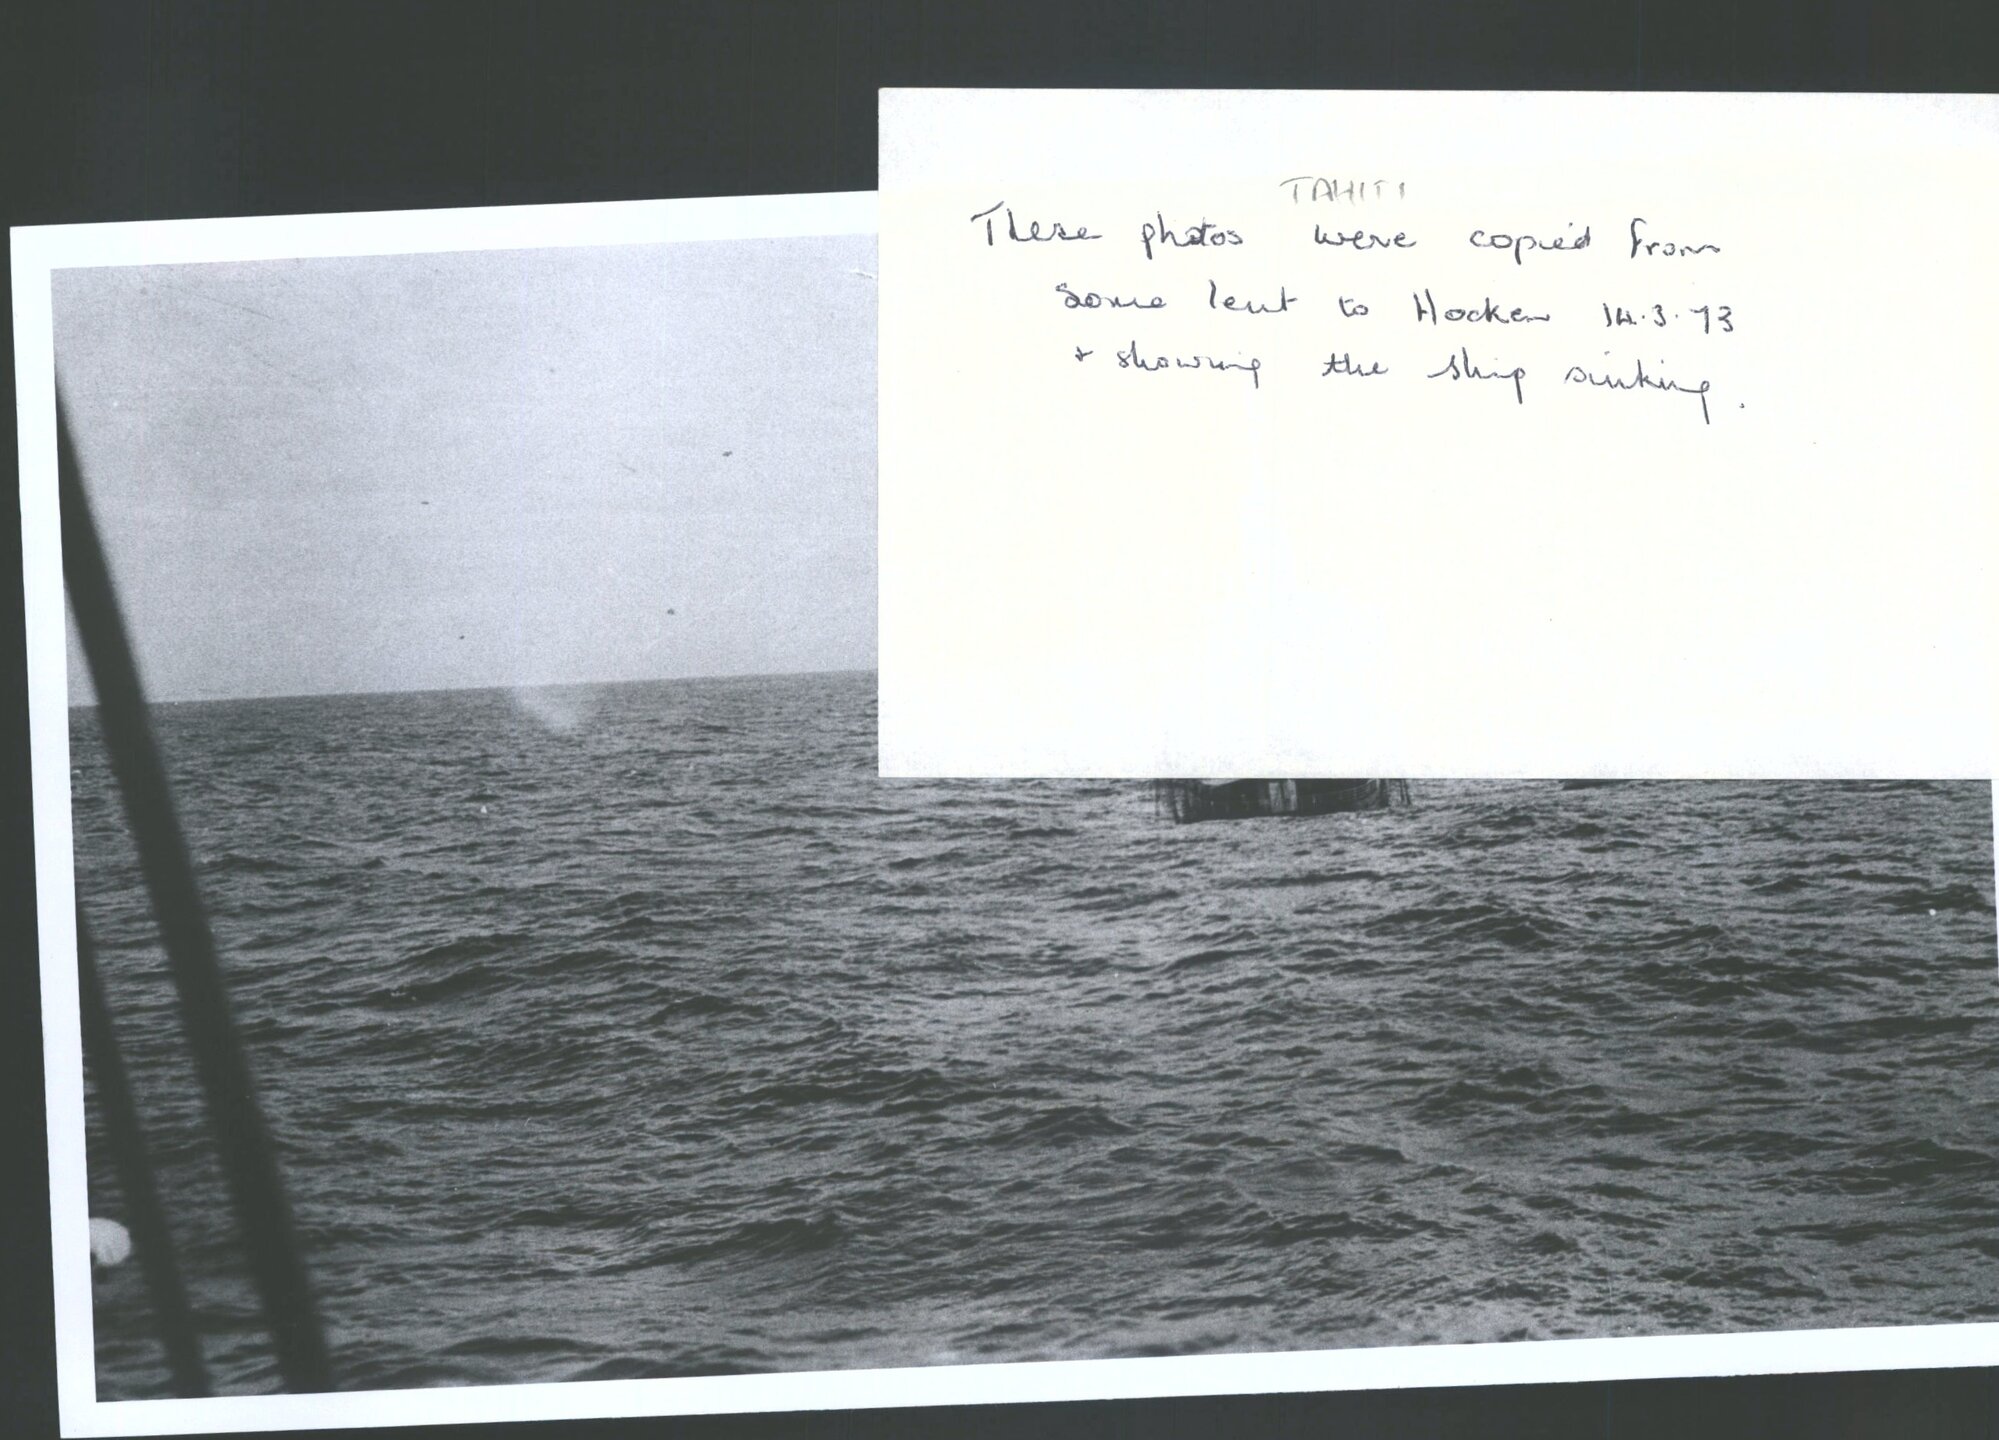 TAHITI
These photos were copied from
some lent to Hocken 14.3.73
+ showing the ship sinking.